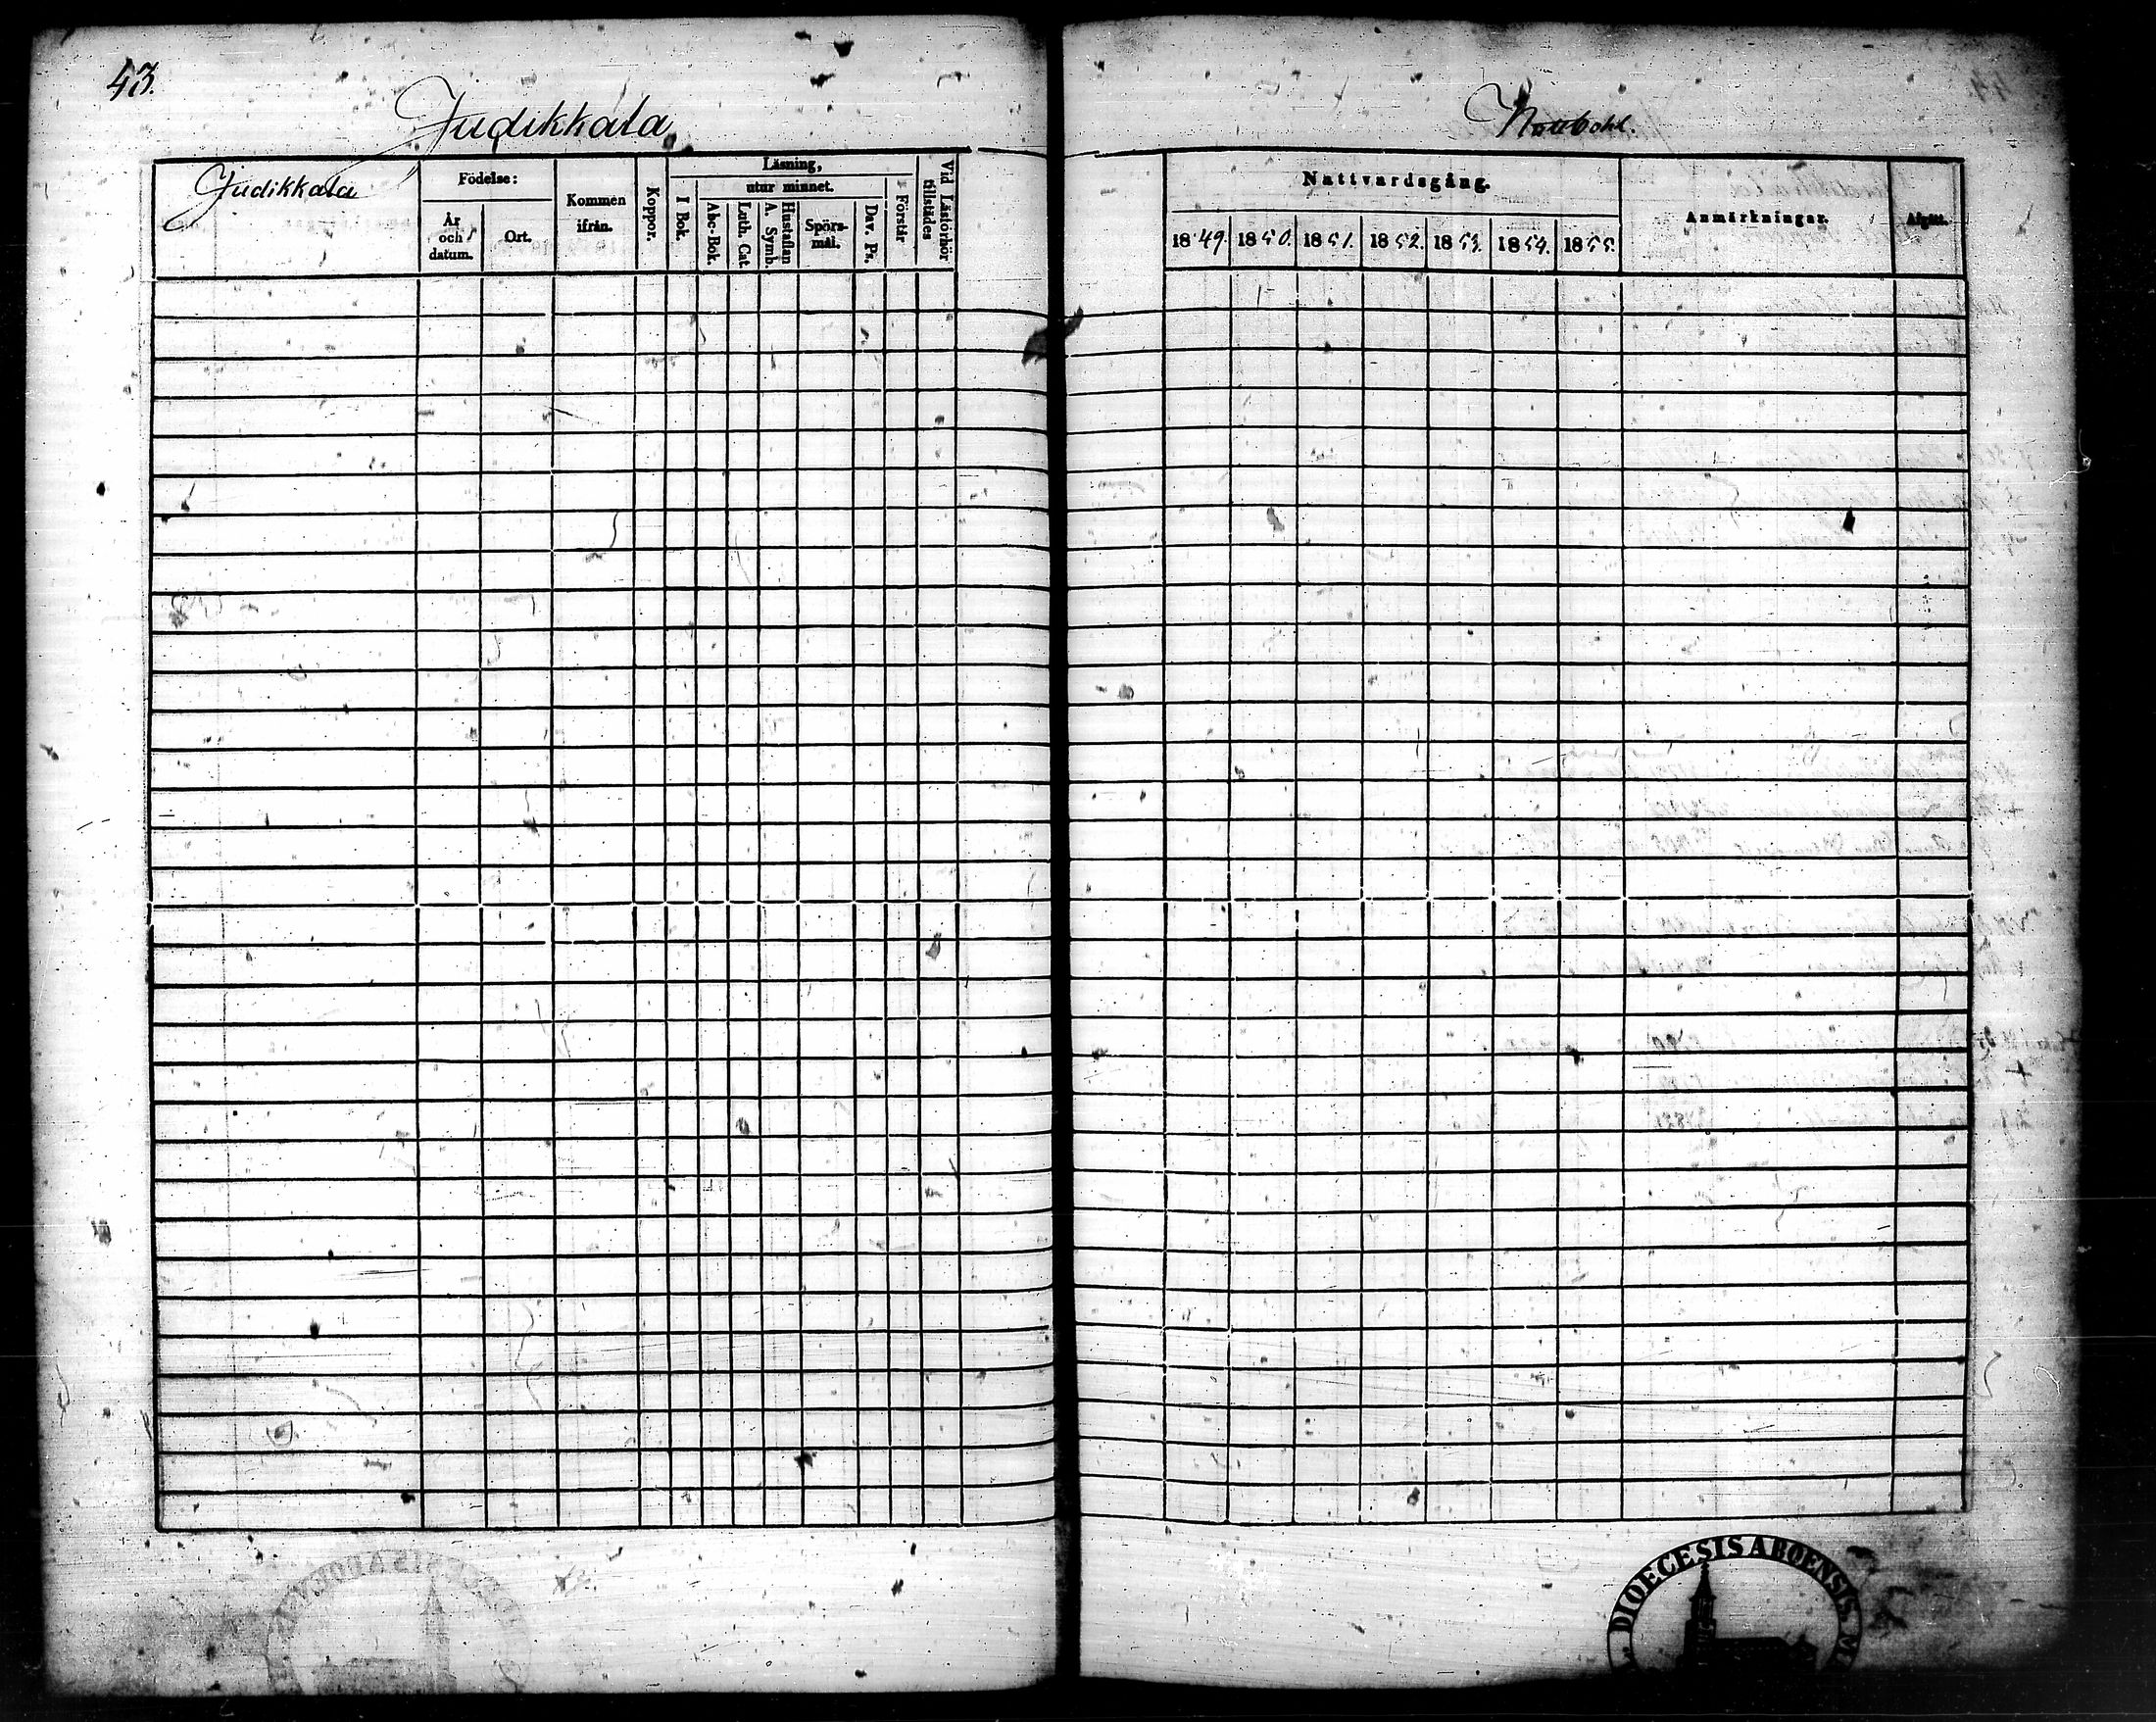 43.
Judikkala
Judikkala
Födelse:
År och datum.
Ort.
Kommen ifrån.
Koppor.
Läsning,
utur minnet.
I Bok.
Abc-Bok.
Luth. Cat.
Hustaflan A. Symb.
Spörsmål.
Dav. Ps.
Förstår
Vid Läsförhör tillstädes
Nattvardsgång.
1849. 1850. 1851. 1852. 1853. 1854. 1855.
Anmärkningar.
Afgått.
DIOECESIS ABOENSIS